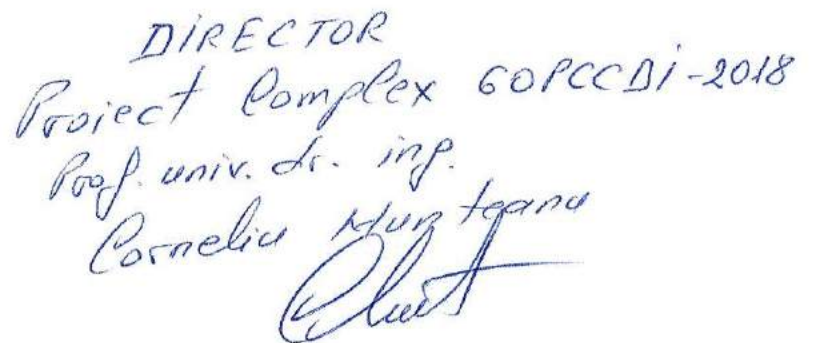 DIRECTOR
Proiect Complex 60PCCDI-2018
Prof. univ. dr. ing.
Corneliu Munteanu